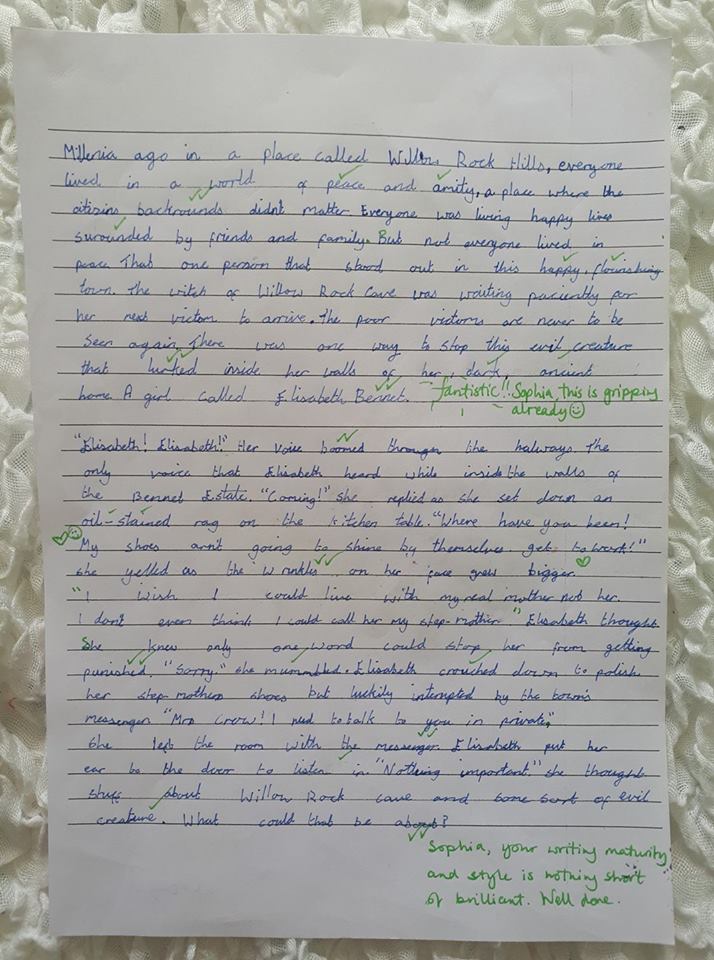 Millenia ago in a place called Willow Rock Hills, everyone
lived in a world of peace and amity, a place where the
citizins backrounds didn't matter. Everyone was living happy lives
surounded by friends and family. But not everyone lived in
peace. That one person that stood out in this happy, flourishing
town. The witch of Willow Rock Cave was waiting paciently for
her next victom to arrive. The poor victoms are never to be
seen again. There was one way to stop this evil creature
that lurked inside her walls of her, dark, ancient
home. A girl called Elisabeth Bennet.
fantistic!! Sophia, this is gripping
already
"Elisabeth! Elisabeth!" Her voice boomed through the halways. The
only voice that Elisabeth heard while inside the walls of
the Bennet Estate. "Coming!" she replied as she set down an
oil-stained rag on the kitchen table. "Where have you been!
My shoes arn't going to shine by themselves. get to work!"
she yelled as the wrinkles on her face grew bigger.
"I wish I could live with my real mother not her.
I don't even think I could call her my step-mother" Elisabeth thought
She knew only one word could stop her from getting
punished. "Sorry." she mummbled. Elisabeth crouched down to polish
her step-mothers shoes but luckily interupted by the town's
messenger "Mrs Crow! I need to talk to you in private,"
She left the room with the messenger. Elisabeth put her
ear to the door to listen in. "Nothing important." she thought
stuff about Willow Rock cave and some sort of evil
creature. What could that be about?
Sophia, your writing maturity
and style is nothing short
of brilliant. Well done.